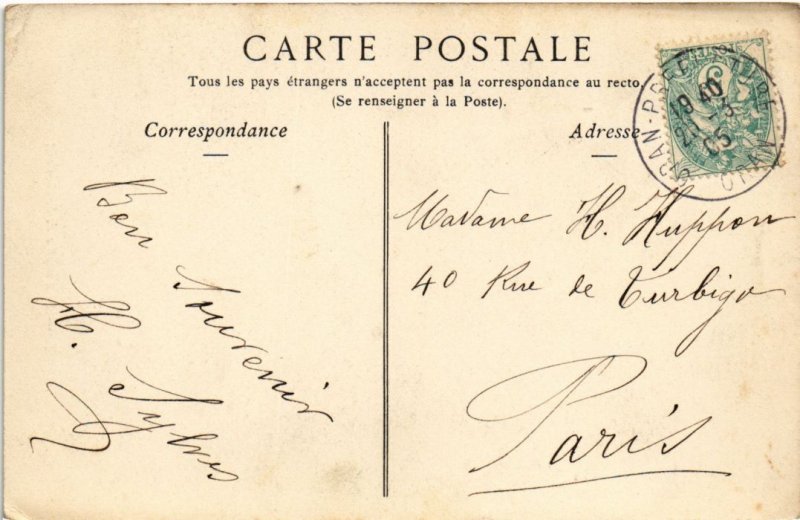 CARTE POSTALE
Tous les pays étrangers n'acceptent pas la correspondance au recto.
(Se renseigner à la Poste).
Correspondance
Adresse
ORAN-PRÉFECTURE
19 40
-3
05
ORAN
Bon
Souvenir
H.
Madame H. Huppon
40 Rue de Turbigo
Paris